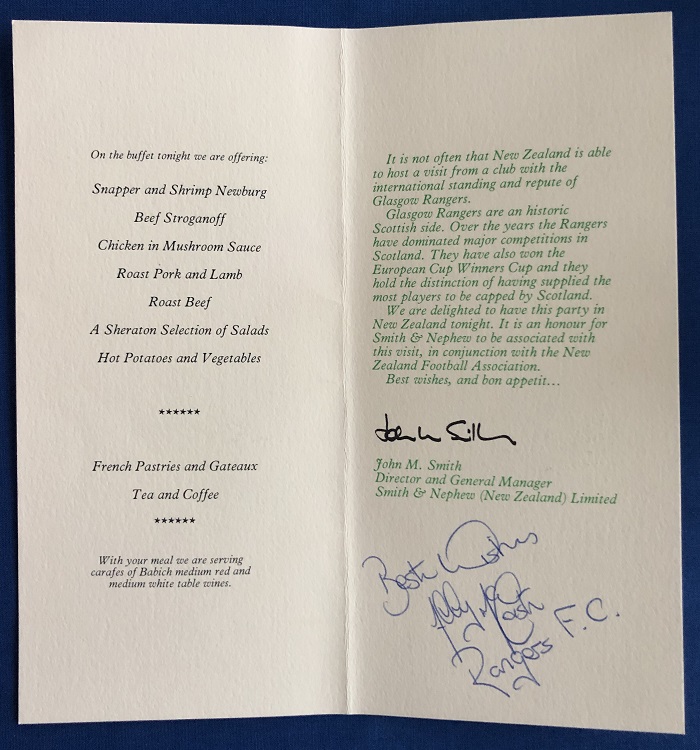 On the buffet tonight we are offering:
Snapper and Shrimp Newburg
Beef Stroganoff
Chicken in Mushroom Sauce
Roast Pork and Lamb
Roast Beef
A Sheraton Selection of Salads
Hot Potatoes and Vegetables
******
French Pastries and Gateaux
Tea and Coffee
******
With your meal we are serving
carafes of Babich medium red and
medium white table wines.
It is not often that New Zealand is able
to host a visit from a club with the
international standing and repute of
Glasgow Rangers.
Glasgow Rangers are an historic
Scottish side. Over the years the Rangers
have dominated major competitions in
Scotland. They have also won the
European Cup Winners Cup and they
hold the distinction of having supplied the
most players to be capped by Scotland.
We are delighted to have this party in
New Zealand tonight. It is an honour for
Smith & Nephew to be associated with
this visit, in conjunction with the New
Zealand Football Association.
Best wishes, and bon appetit...
John M. Smith
Director and General Manager
Smith & Nephew (New Zealand) Limited
Best Wishes
Rangers F.C.